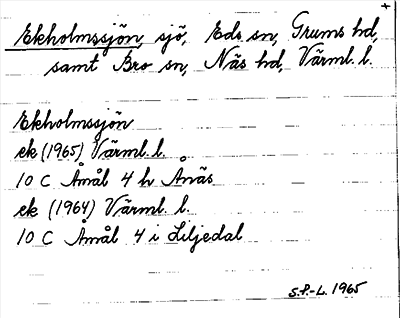 Ekholmssjön, sjö, Eds sn, Grums hd,
samt Bro sn, Näs hd, Värml. l.
Ekholmssjön
ek (1965) Värml. l.
10 C Åmål 4 h Ånäs
ek (1964) Värml. l.
10 C Åmål 4 i Liljedal
S.P.-L. 1965